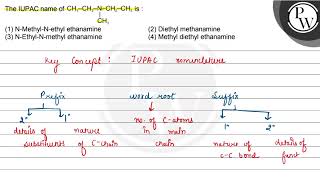 The IUPAC name of CH₃–CH₂–N–CH₂–CH₃ is :
CH₃
(1) N-Methyl-N-ethyl ethanamine
(2) Diethyl methanamine
(3) N-Ethyl-N-methyl ethanamine
(4) Methyl diethyl ethanamine
Key Concept : IUPAC nomenclature
Prefix word root Suffix
2° 1° no. of C-atoms 1° 2°
details of nature in main nature of details of
substituents of C-chain chain C-C bond funct